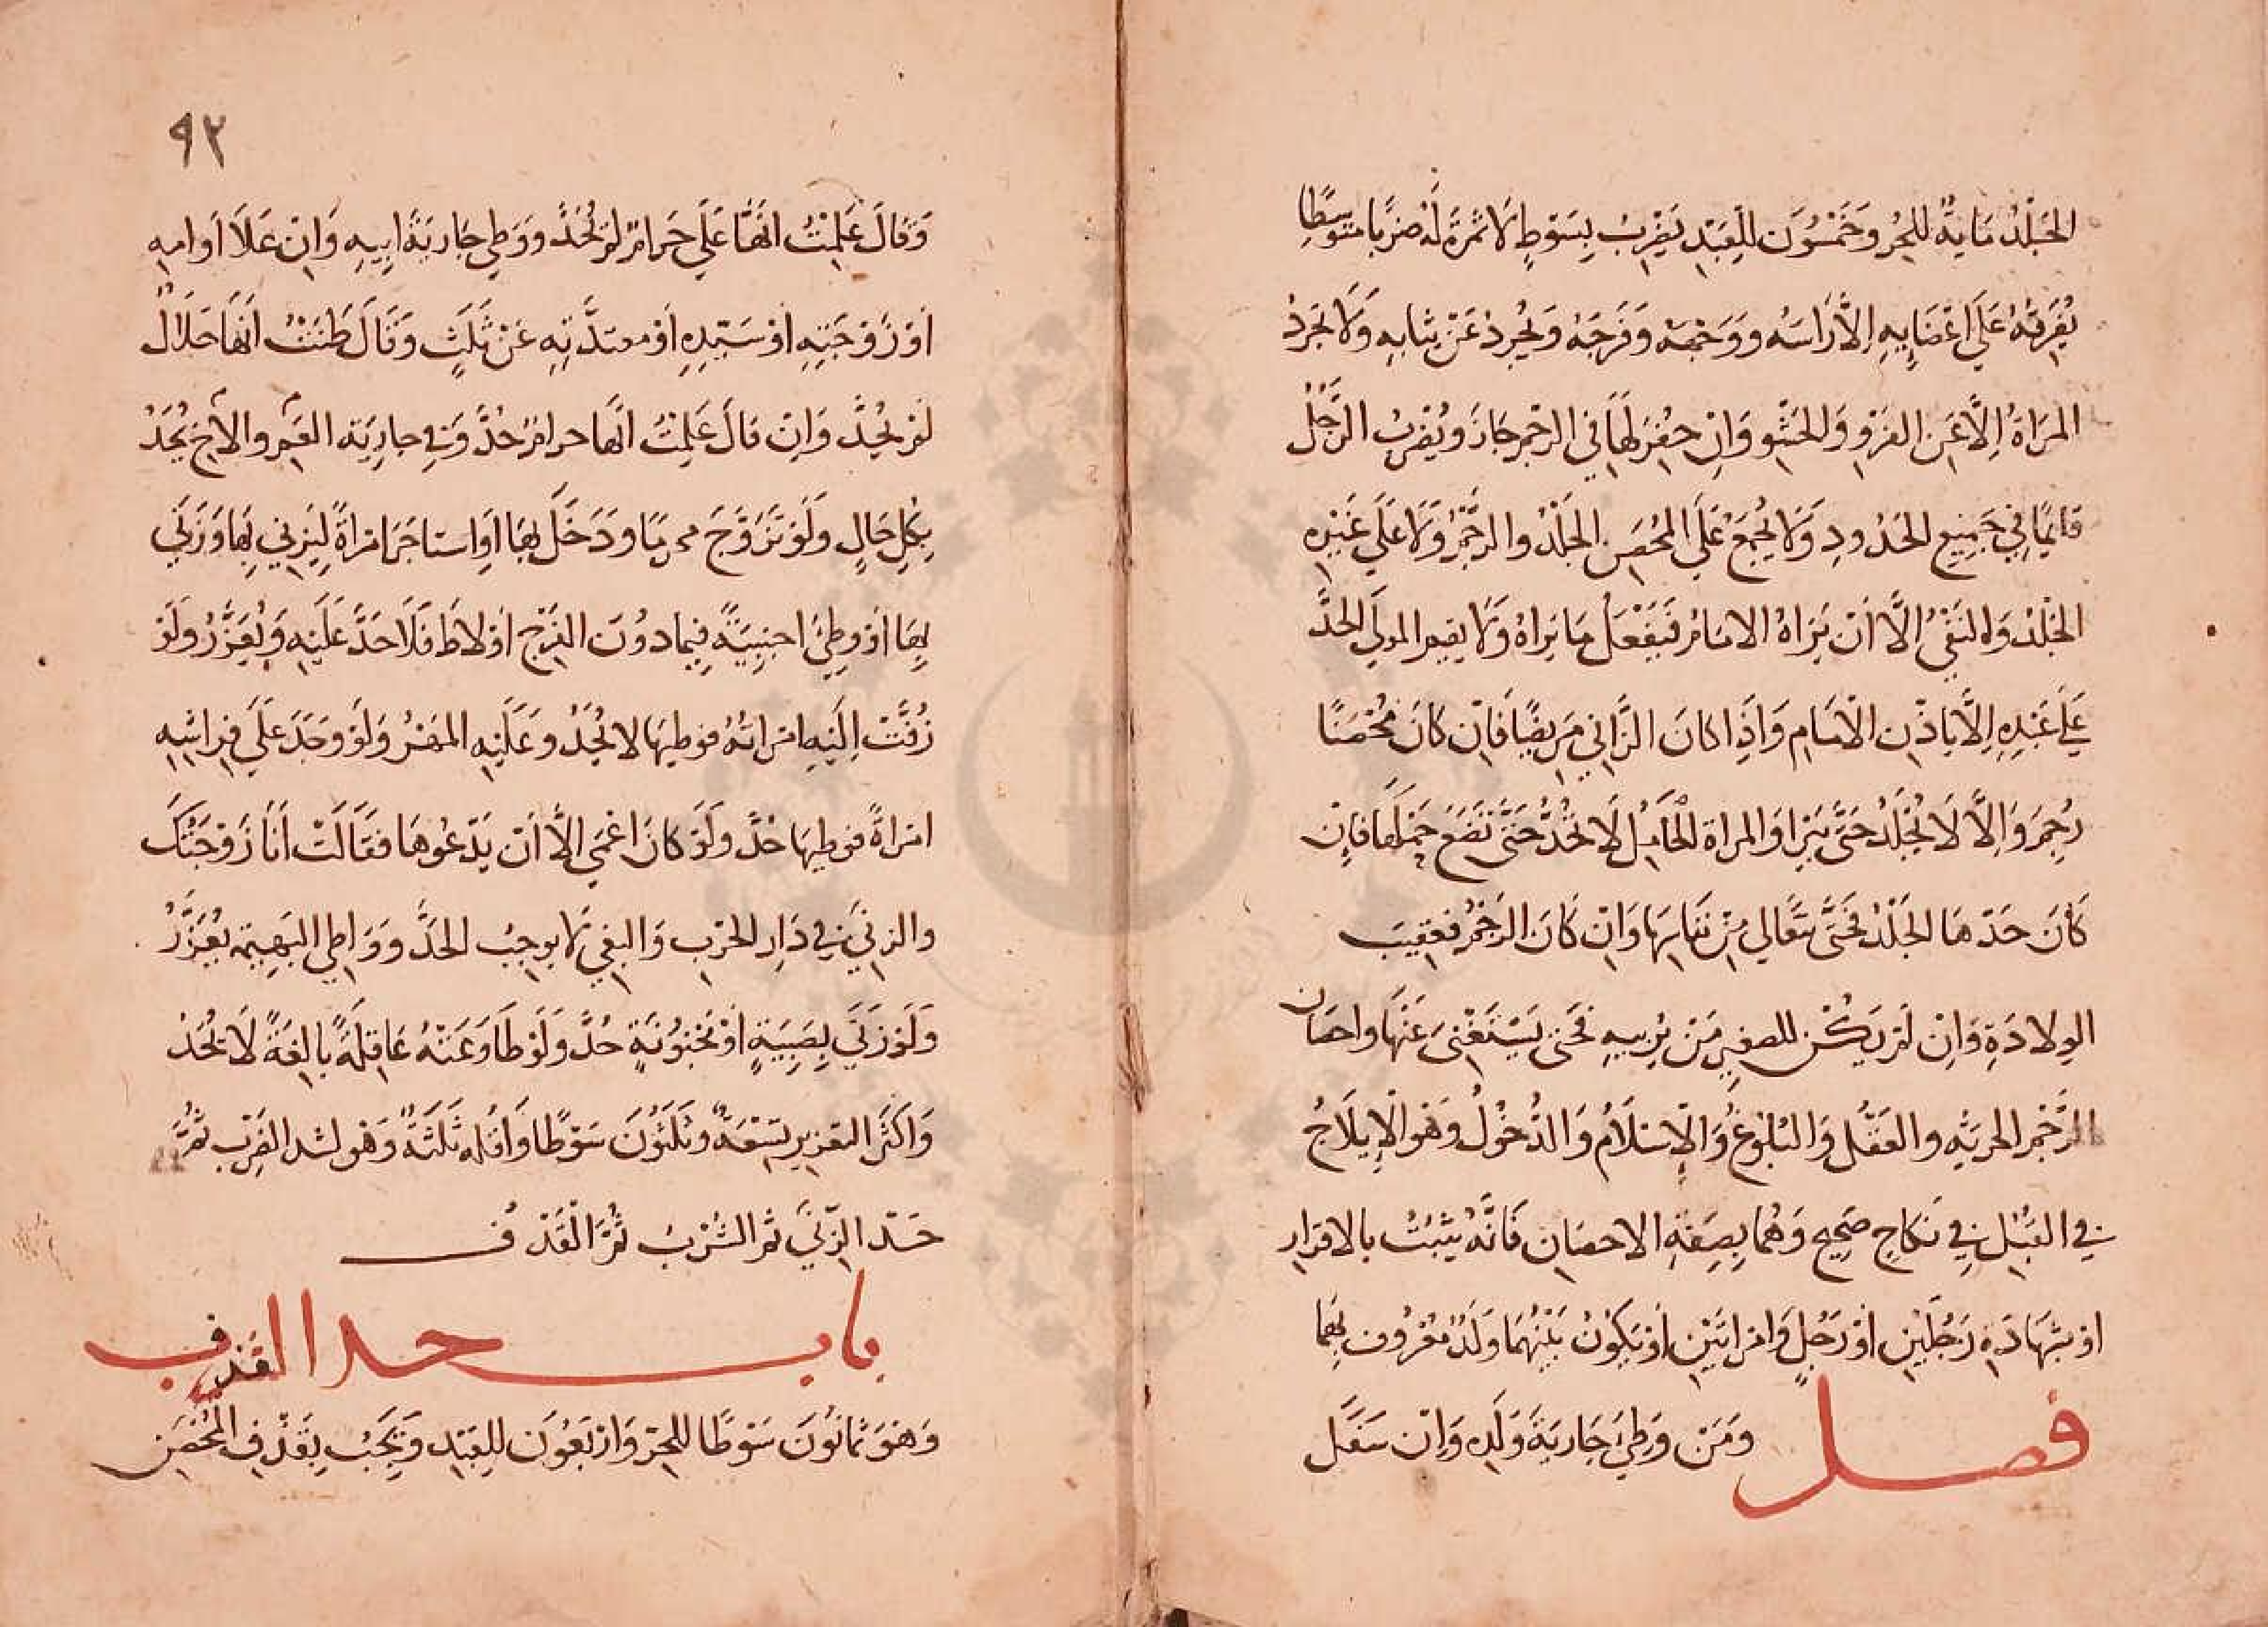 الجَلْدُ مَايَةٌ لِلحُرِ وَخَمْسُونَ لِلْعَبْدِ يَضْرِبُ بِسَوْطٍ لَا ثمرَةَ لَهُ ضربًا متوسِّطًا
يُفَرِقُهُ عَلَي اعْضَايِهِ اِلَّا رَاسَه وَوَجْهَه وَفَرجَهُ وَيُجردُ عَنْ ثيابِهِ وَلَا تجَردُ
المَرَاةُ اِلَّا عَنِ الفَرْوِ وَالحَشْوِ وَاِنْ حفرَ لَهَا فِي الرجْمِ جَازَ وَيُضْرَبُ الرَّجُلُ
قايمًا فِي جَمِيعِ الحُدُودِ وَلَا يُجمَعُ عَلَي المُحْصَنِ الجَلْدُ والرَّجْمُ وَلَا عَلَي غَيْرِهِ
الجَلْدُ وَالنَفْيُ اِلَّا اَنْ يَرَاهُ الامَامُ فَيَفْعَلُ مَا يَرَاهُ وَلَا يقيم المولَي الحَدَّ
عَلَي عَبْدِهِ اِلَّا بِاذْنِ الْامَامِ وَاِذَا كانَ الزَّانِي مَرِيضًا فَاِنْ كانَ مُحْصَنًا
رُجِمَ وَاِلَّا لَا يُجْلَدُ حَتَّى يَبْرَا وَالمراة الْحَامِلُ لَا تُحَدُّ حَتَّى تَضَعَ حَمْلَهَا فاِنْ
كَانَ حَدّهَا الجَلْدُ فَحَتَّى تتَعَالي مِنْ نفَاسِهَا وَاِنْ كَانَ الرَجْمُ فَعقِيبَ
الوِلادَةِ وَاِنْ لَمْ يَكُنْ للصغِيرِ مَنْ يُرَبيهِ فحَتى يَسْتَغْنِىَ عَنْهَا واحصَان
الرَّجْمِ الحريَّه والعَقْل وَالبُلوغُ وَالْاِسْلَامُ وَالدُّخُولُ وَهُوَ الْاِيلَاجُ
فِي القُبُلِ فِي نكَاحٍ صَحِيحٍ وَهُمَا بِصِفَةِ الاحصَانِ فَانَّهُ يثبُتُ بالاقرارِ
اوْ بشهَادَةِ رَجُلَيْنِ اوْ رَجُلٍ وَامْرَاتَيْنِ اَوْ يَكوْنُ بَيْنَهُمَا وَلَدٌ مَعْرُوف بِهِمَا
فصل وَمَنْ وَطِيَ جَارِيَةَ وَلَدِهِ وَاِنْ سَفَلَ
٩٢
وَقَالَ عَلِمْتُ انَّهَا عَلَي حَرَامٌ لَمْ يُحَدَّ وَوَطي جَاريَةَ ابِيهِ وَاِنْ عَلَا اَوامِهِ
اَوْ زَوْجَتِهِ اوْ سَيّدِهِ اَوْ معتدَّتِهِ عَنْ ثَلَثٍ وَقَالَ ظَنَنْتُ اَنَّهَا حَلَالٌ
لَمْ يُحدَّ وَاِنْ قالَ عَلِمْتُ انَّها حرامٌ حُدَّ وَفي جارِيَة العَمِ والاَخِ يُحَدُ
بكلِ حَالٍ وَلَوْ تَزَوَّجَ محرمًا وَدَخَلَ بهَا اَوِ استاجَرَ امْرَاةً لِيَزنِي بِهَا وَزَنَي
بِهَا اوْ وطِئَ اجنِبيَّةً فِيما دُونَ الفَرْج اوْ لاطَ فَلَا حَدَّ عَلَيْهِ وَيُعَزَّرُ وَلَوْ
زُفَّتْ اِلَيْهِ امْرَاتُهُ فوطيهَا لا يُحَدُ وَعَلَيْهِ المَهْرُ وَلَوْ وَجَدَ عَلَي فِرَاشِهِ
امْرَاةً فوطيهَا حُدَّ ولَوْ كانَ اعْمَي اِلَّا اَنْ يَدّعُوهَا فقَالَتْ اَنَا زَوْجَتُكَ
والزِنَي فِي دَارِ الحَرْبِ وَالبغي لَا يوجِبُ الحَدَّ وَوَاطِي البَهِيمَة يُعَزَّرُ
وَلَوْ زَنَي بِصَبِيَةٍ اوْ مَجنوُنَةٍ حُدَّ وَلَوْ طَاوَعَتْهُ عَاقِلَةً بالِغَةً لَا يُحَدْ
وَاَكثَر التعْزِيرِ تِسْعَةٌ وَثَلثُونَ سَوْطًا وَاَقله ثَلثَةٌ وَهو اشد الضَرْبِ ثُمَّ
حَدّ الزّنَي ثم الشُرْبُ ثُمَّ الْقَذْف
باب حد القذف
وَهوَ ثمانُونَ سَوْطًا للحِرِ وَارْبَعُونَ لِلعَبْدِ وَيَجبُ بِقَذْفِ المُحْصَنِ